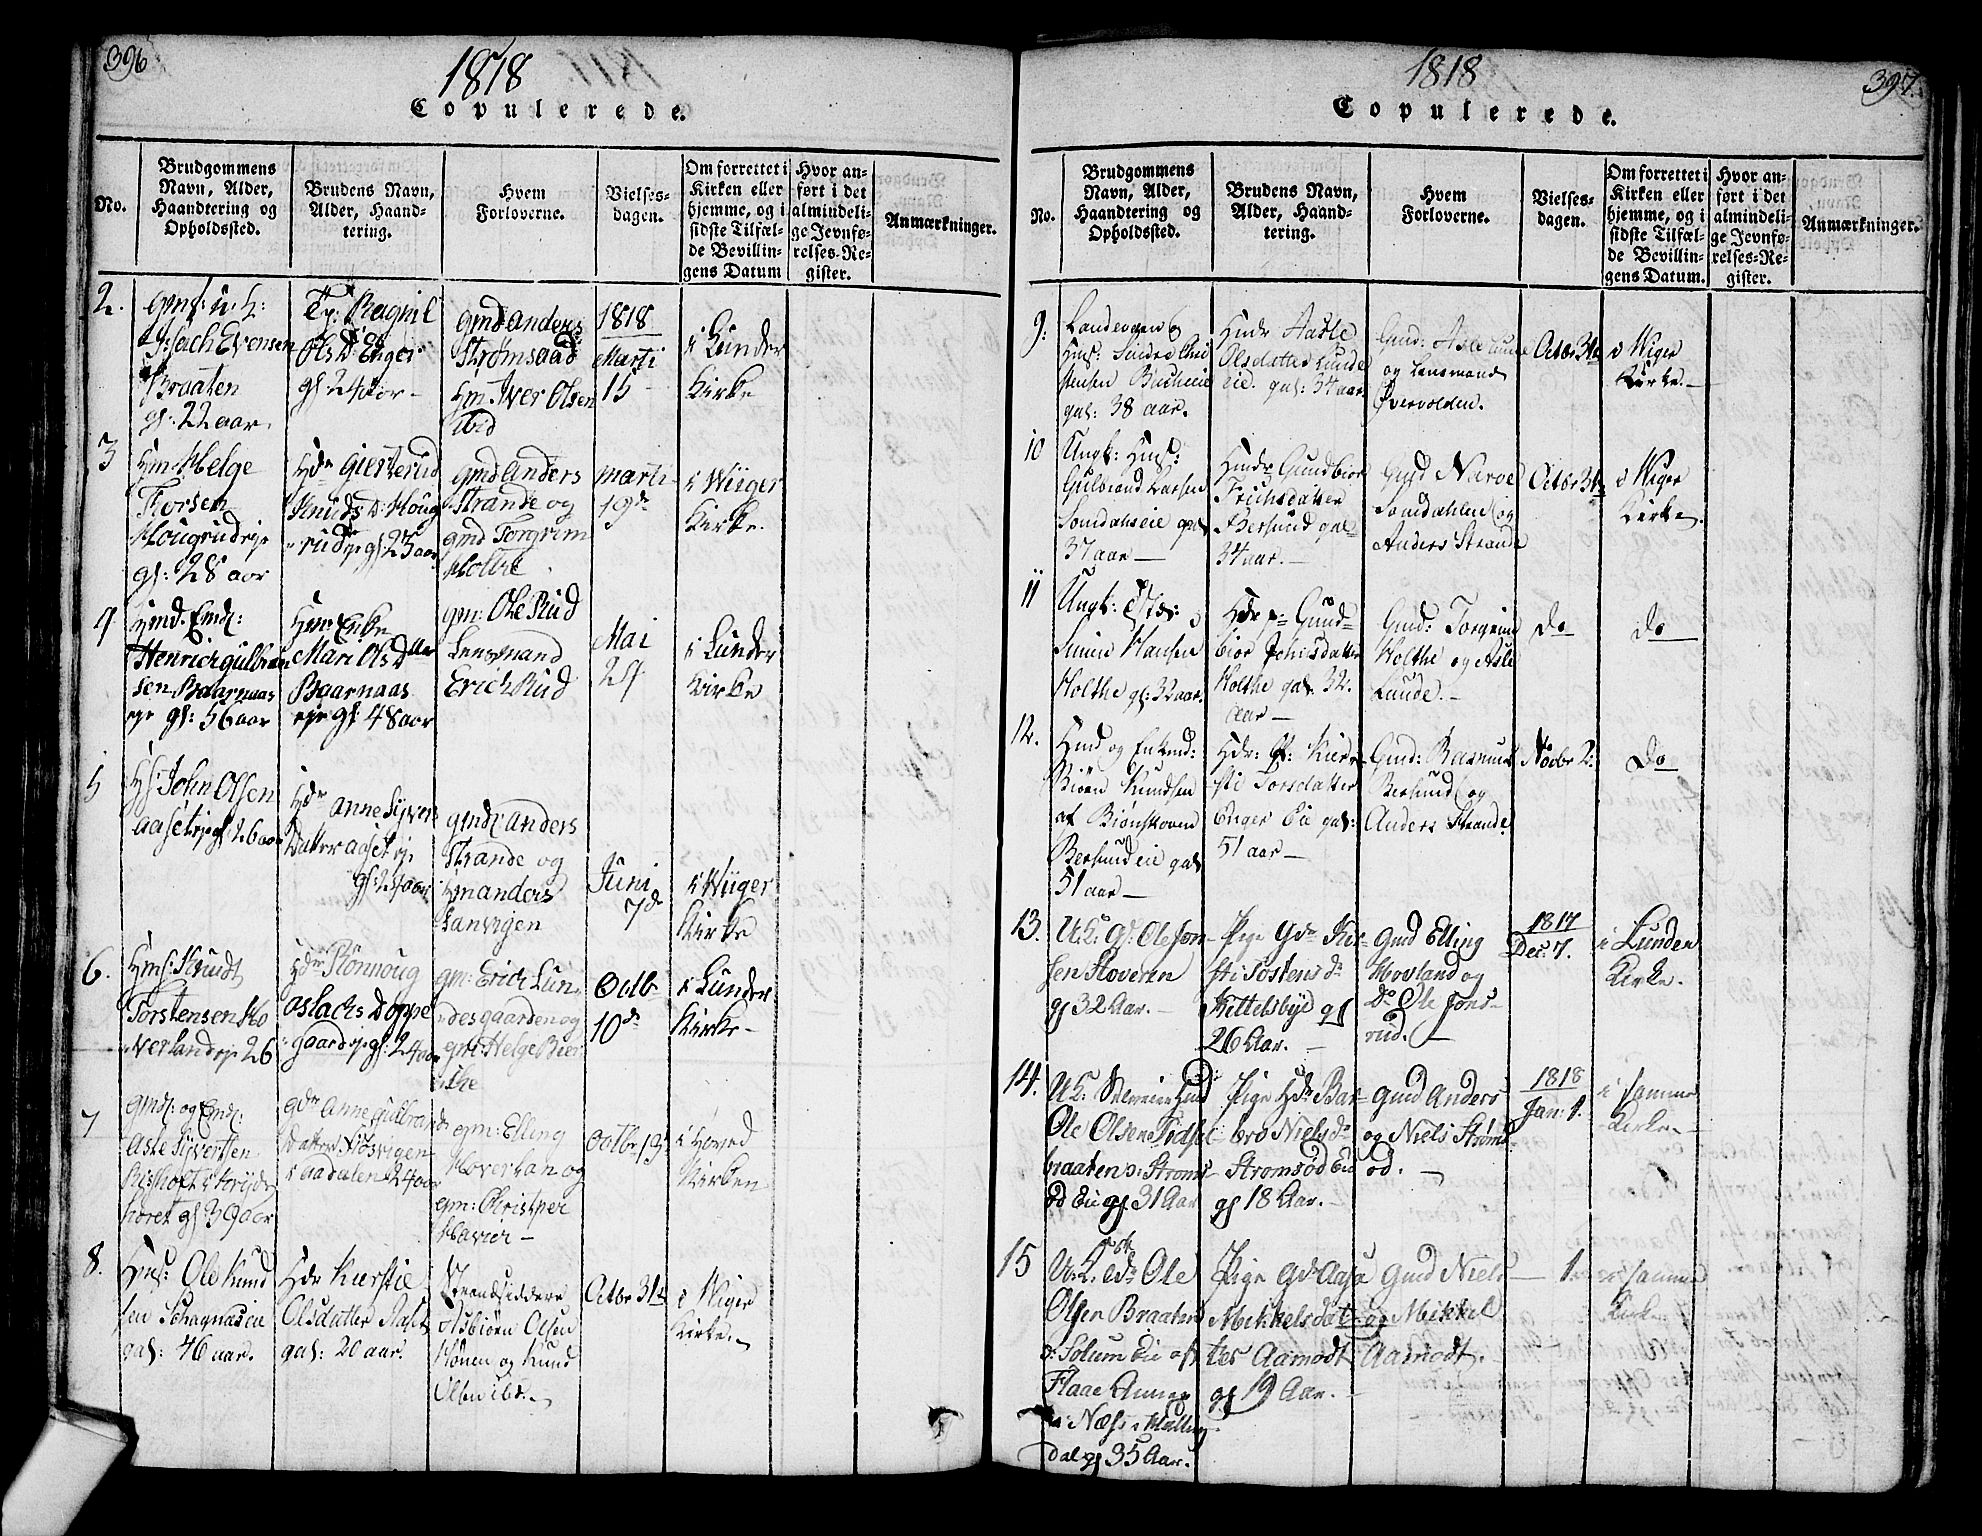 396
1818
Copulerede.
No.
Brudgommens
Navn, Alder,
Haandtering og
Opholdssted.
Brudens Navn,
Alder, Haand-
tering.
Hvem
Forloverne.
Vielses-
dagen.
Om forrettet i
Kirken eller
hjemme, og i
sidste Tilfæl-
de Bevillin-
gens Datum
Hvor an-
ført i det
almindeli-
ge Jevnfø-
relses-Re-
gister.
Anmærkninger.
2.
Isach Evensen
Braaten
gl: 22 aar.
Pg: Ragnil
Ols D: Enger
gl 24 aar -
gmd Anders
Strømsaad
Hm. Iver Olsen
ibid
1818
Marti
15
i Lunder
Kirke
3
Hm. Helge
Torsen
Hougrud eje
gl: 28 aar
Hdr Gierterud
Knuds D: Houg
rud eje gl 25 aar
gmd Anders
Strande og
gmd Torgrim
Holthe
marti
19de
i Wiiger
Kirke.
4
Hmd. Emd:
Henrich Gulbran
sen Baarnaas
eje gl: 56 aar
Hm: Enke
Mari Ols Dtter
Baarnaas
eje gl: 48 aar
gm: Ole Rud
Lensmand
Erich Rud
Mai
24
i Lunder
Kirke
5
Hs: John Olsen
Aaset eje gl 26 aar
Hdr Anne Syver
Datter Aaset eje
gl: 24 aar
gmd: Anders
Strande og
Hm Anders
Juni
7de
i Wiiger
Kirke
6.
Hms: Knudt
Torstensen Ho
verland eje 26
Hdr Rønnoug
Oslachs D Oppe
gaard eje gl: 24 aar
gm: Erich Lun
desgaarden og
gm: Helge Bier
ke
Octb
10de
i Lunder
Kirke -
7
gmd: og Emd:
Asle Syvertsen
gl 39 aar
gdr Anne Gulbrands
Datter
i Aadalen 24 aar
gm: Elling
Hoverlan og
gm: Christoper
Havier -
Octbr 13
i Hoved
Kirken
8.
Hms: Ole Knud
sen Skagnæs eie
gal: 46 aar.
Hdr Kierstie
Olsdatter Aaset
gal: 20 aar.
Strandsiddere
Asbiørn Olsen
Hønen og Knud
Olsen ibd.
Octbr 31te
i Wiger
Kirke.
397.
1818
Copulerede.
No.
Brudgommens
Navn, Alder,
Haandtering og
Opholdssted.
Brudens Navn,
Alder, Haand-
tering.
Hvem
Forloverne.
Vielses-
dagen.
Om forrettet i
Kirken eller
hjemme, og i
sidste Tilfæl-
de Bevillin-
gens Datum.
Hvor an-
ført i det
almindeli-
ge Jevnfø-
relses-Re-
gister.
Anmærkninger.
9.
Landeværn og
Hms: Sindre Chri
stensen Bache eie
gal: 38 aar.
Hmdr Aasle
Olsdatter Lunde
eie. gal: 34 aar
Gmd: Asle Lunde
og Lensmand
Øvervolden.
Octbr 31te
i Wiger
Kirke. -
10
Ungk: Hms:
Gulbrand Larsen
Somdals eie gal
37 aar -
Hmdr Gundbior
Erichsdatter
Bersund gal
34 aar. -
Gmd Narve
Somdahlen og
Anders Strande
Octbr 31te
i Wiger
Kirke.
11
Simen Hansen
Holthe gl: 32 aar.
Hdr p- Gund
bior Johnsdatter
Holthe gal. 32.
Aar -
Gmd: Torgrim
Holthe og Asle
Lunde. -
do
do
12.
Hmd og Enkmd:
Biørn Knudsen
af Biønskoven
Bersund eie gal
51 aar -
Hdr: E: Kier
sti Torsdatter
Enger Eie gal:
51 aar -
Gmd: Rasmus
Bersund og
Anders Strande
Novbr 2:
do
13.
U: K: G: Ole Jon-
sen Sloveren
gl 32 Aar. -
Pige Gdr Kir-
sti Tostens dr
Kittelsbye gl
26 Aar. -
Gmd Elling
Hovland og
Do Ole Jons-
rud. -
1817
Dec: 7.
i Lunden
Kirke.
14.
Ole Olsen
braaten o: Strøms-
od Eie gl 31 Aar
Pige Hdr Bar-
bro Niels dr
Stromsød Eie
gl 18 Aar. -
Gmd Anders
og Niels Strøms-
od. -
1818
Jan: 1.
i samme
Kirke. -
15
Ole
Olsen Braaten
o: Solum Eie af
Flaae Annex
i Næss i Halling
dal gl 35 Aar.
Pige Gdr Aase
Mikkelsdat-
ter Aamodt
gl 19 Aar. -
Gmd Niels
og Mikkel
Aamodt. -
- 1.
i samme
Kirke.